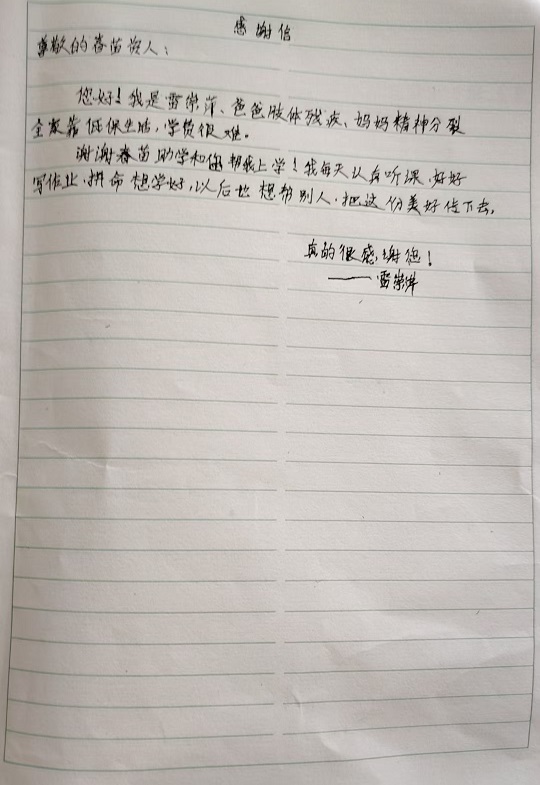 感谢信
尊敬的春苗资人：
您好！我是雷崇萍、爸爸肢体残疾、妈妈精神分裂
全家靠低保生活，学费很难。
谢谢春苗助学和您帮我上学！我每天认真听课，好好
写作业，拼命想学好，以后也想帮别人，把这份美好传下去。
真的很感谢您！
——雷崇萍